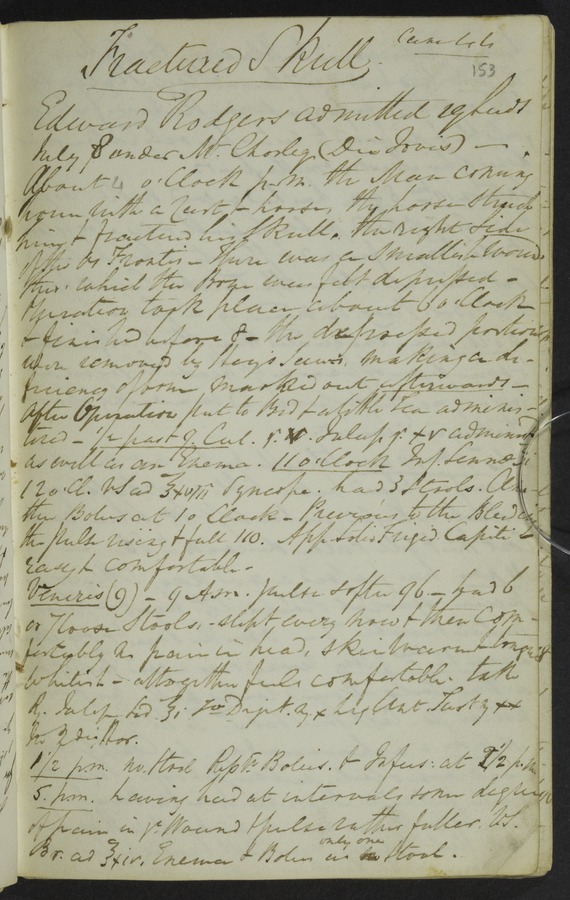 Fractured Skull.
153
Edward Rodgers admitted
July 8 under Mr. Chorley (Die Jovis) —
About 4 o'Clock p.m. the Man coming
home with a Cart & horse, the horse struck
him & fractured his Skull, the right side
of the Os Frontis — there was a smallish wound
thro' which the Bone was felt depressed —
Operation took place about 6 o'Clock
& finished before 8 — the depressed portions
were removed by Heys Saws, making a de-
ficiency of bone marked out afterwards —
After Operation put to Bed & a little Tea adminis-
tered — ½ past 9 Cal. gr. V. Jalap gr. XV administ
as well as an Enema. 11 o'Clock Inf. Sennæ
12 o.Cl. VS ad ℥xviii Syncope. had 3 Stools.
the Bolus at 10 Clock — Previous to the Bleeding
the Pulse rising & full 110. App. Lotio Frigid Capiti —
easy & comfortable —
Veneris (9) — 9 A.m. pulse softer 96 — had 6
or 7 loose Stools, slept every now & then Com-
fortably no pain in head, skin warm & tongue
whitish — altogether feels comfortable. take
℞. Julep Sed ℥i Digit. Ant Tart
1½ p.m. no stool Rept. Bolus. & Infus: at 2½ p.m.
5 p.m. having had at intervals some degree
of pain in ye Wound & pulse rather fuller. VS.
Br. ad ℥xiv. Enema & Bolus as only one stool.